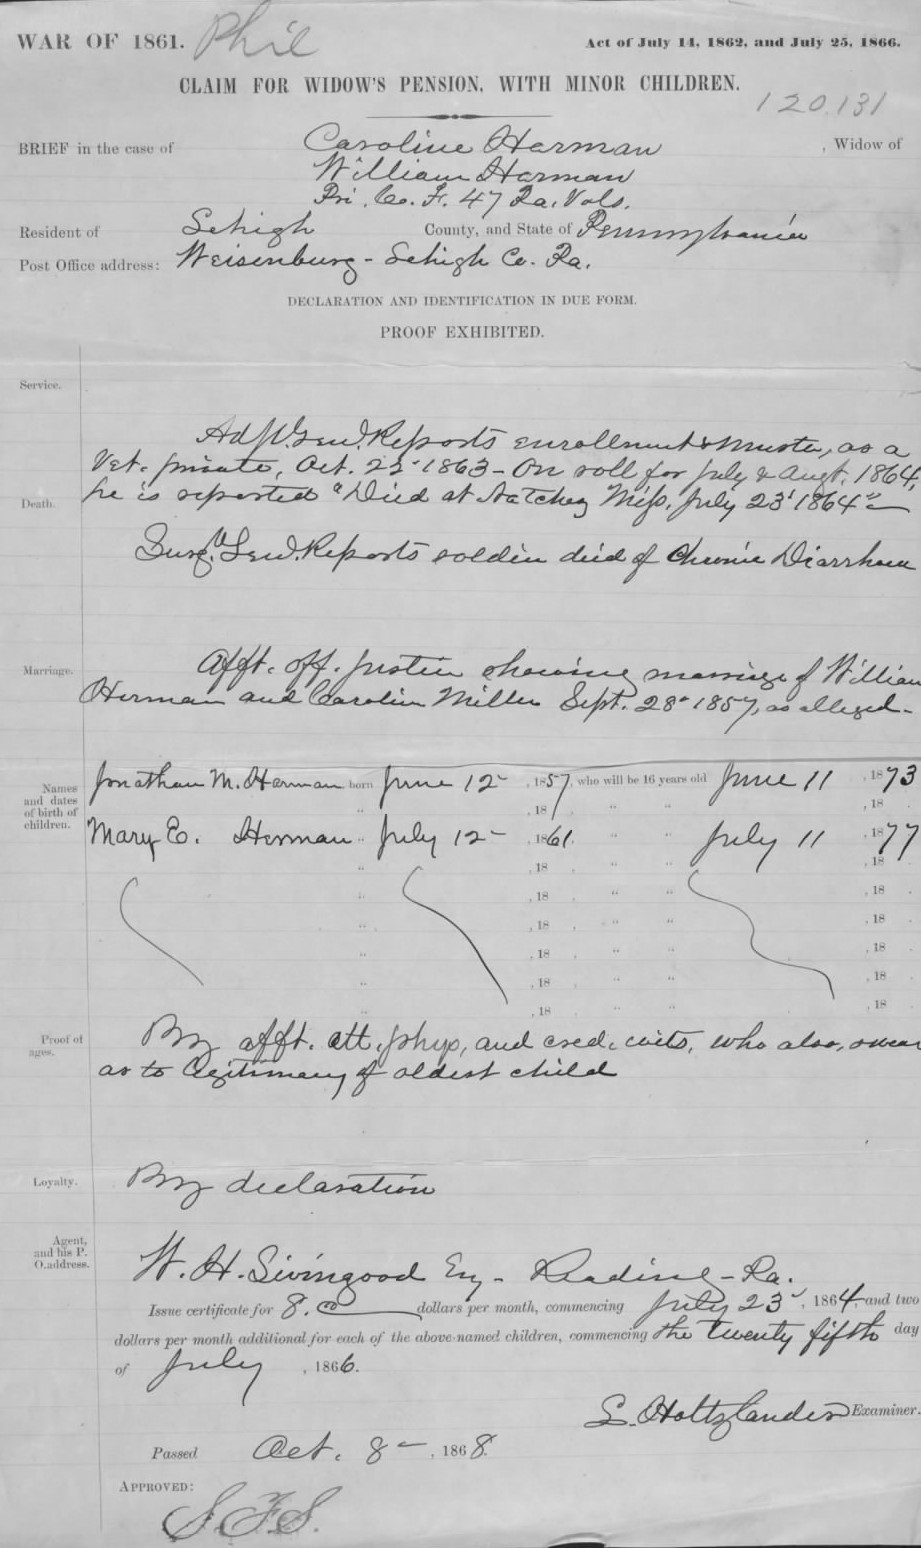 WAR OF 1861. Phil Act of July 14, 1862, and July 25, 1866.
CLAIM FOR WIDOW'S PENSION, WITH MINOR CHILDREN.
120.131
BRIEF in the case of Caroline Harman , Widow of
William Harman
Pri. Co. F. 47 Pa. Vols.
Resident of Lehigh County, and State of Pennsylvania
Post Office address: Weisenburg - Lehigh Co. Pa.
DECLARATION AND IDENTIFICATION IN DUE FORM.
PROOF EXHIBITED.
Service.
Adjt. Genl. Reports enrollment & muster, as a
Vet. private, Oct. 22" 1863 - On roll for July & Augt. 1864,
Death. he is reported "Died at Natchez Miss. July 23' 1864" -
Surg. Genl. Reports soldier died of Chronic Diarrhoea
Marriage. Afft. off. justice showing marriage of William
Herman and Carolin Miller Sept. 28" 1857, as alleged -
Names and dates of birth of children.
Jonathan M. Harman born June 12 - , 1857, who will be 16 years old June 11 , 1873
" , 18 , " " , 18 .
Mary E. Herman " July 12 - , 1861. " " July 11 , 1877
" , 18 , " " , 18 .
" , 18 , " " , 18 .
" , 18 , " " , 18 .
" , 18 , " " , 18 .
" , 18 , " " , 18 .
" , 18 , " " , 18 .
Proof of ages. By afft. att. phys, and cred. wits, who also, swear
as to legitimacy of oldest child
Loyalty. By declaration
Agent, and his P. O. address.
W. H. Livingood Esq - Reading - Pa.
Issue certificate for 8.00 dollars per month, commencing July 23" , 1864, and two
dollars per month additional for each of the above-named children, commencing the twenty fifth day
of July , 1866.
L. Holtzlander Examiner.
Passed Oct. 8 - , 1868.
APPROVED:
S.F.S.